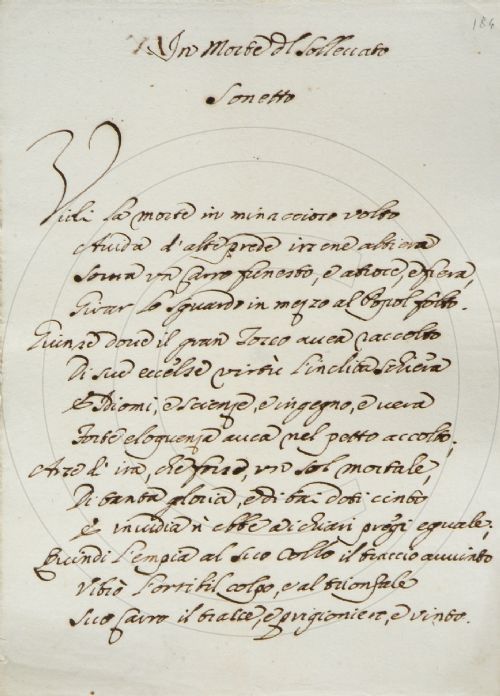 184
In Morte d'l Sollevato
Sonetto
Vidi la morte in minaccioso volto
Avida d'alte prede irsene altiera
Sovra un Carro funesto, e atroce, e fiera,
Girar lo sguardo in mezzo al Popol folto.
Giunse dove il gran Tosco avea raccolto
Di sue eccelse virtù l'inclita schiera
E Idiomi, e scienze, e ingegno, e vera
Forte eloquenza avea nel petto accolto;
Arse d'ira, che fosse un sol mortale,
Di tanta gloria, e di tai doti cinto
E invidia n'ebbe a i chiari pregi eguale;
Quindi l'empia al suo collo il braccio avvinto
Vibrò l'orribil colpo, e al trionfale
Suo Carro il trasse, e prigionier, e vinto.